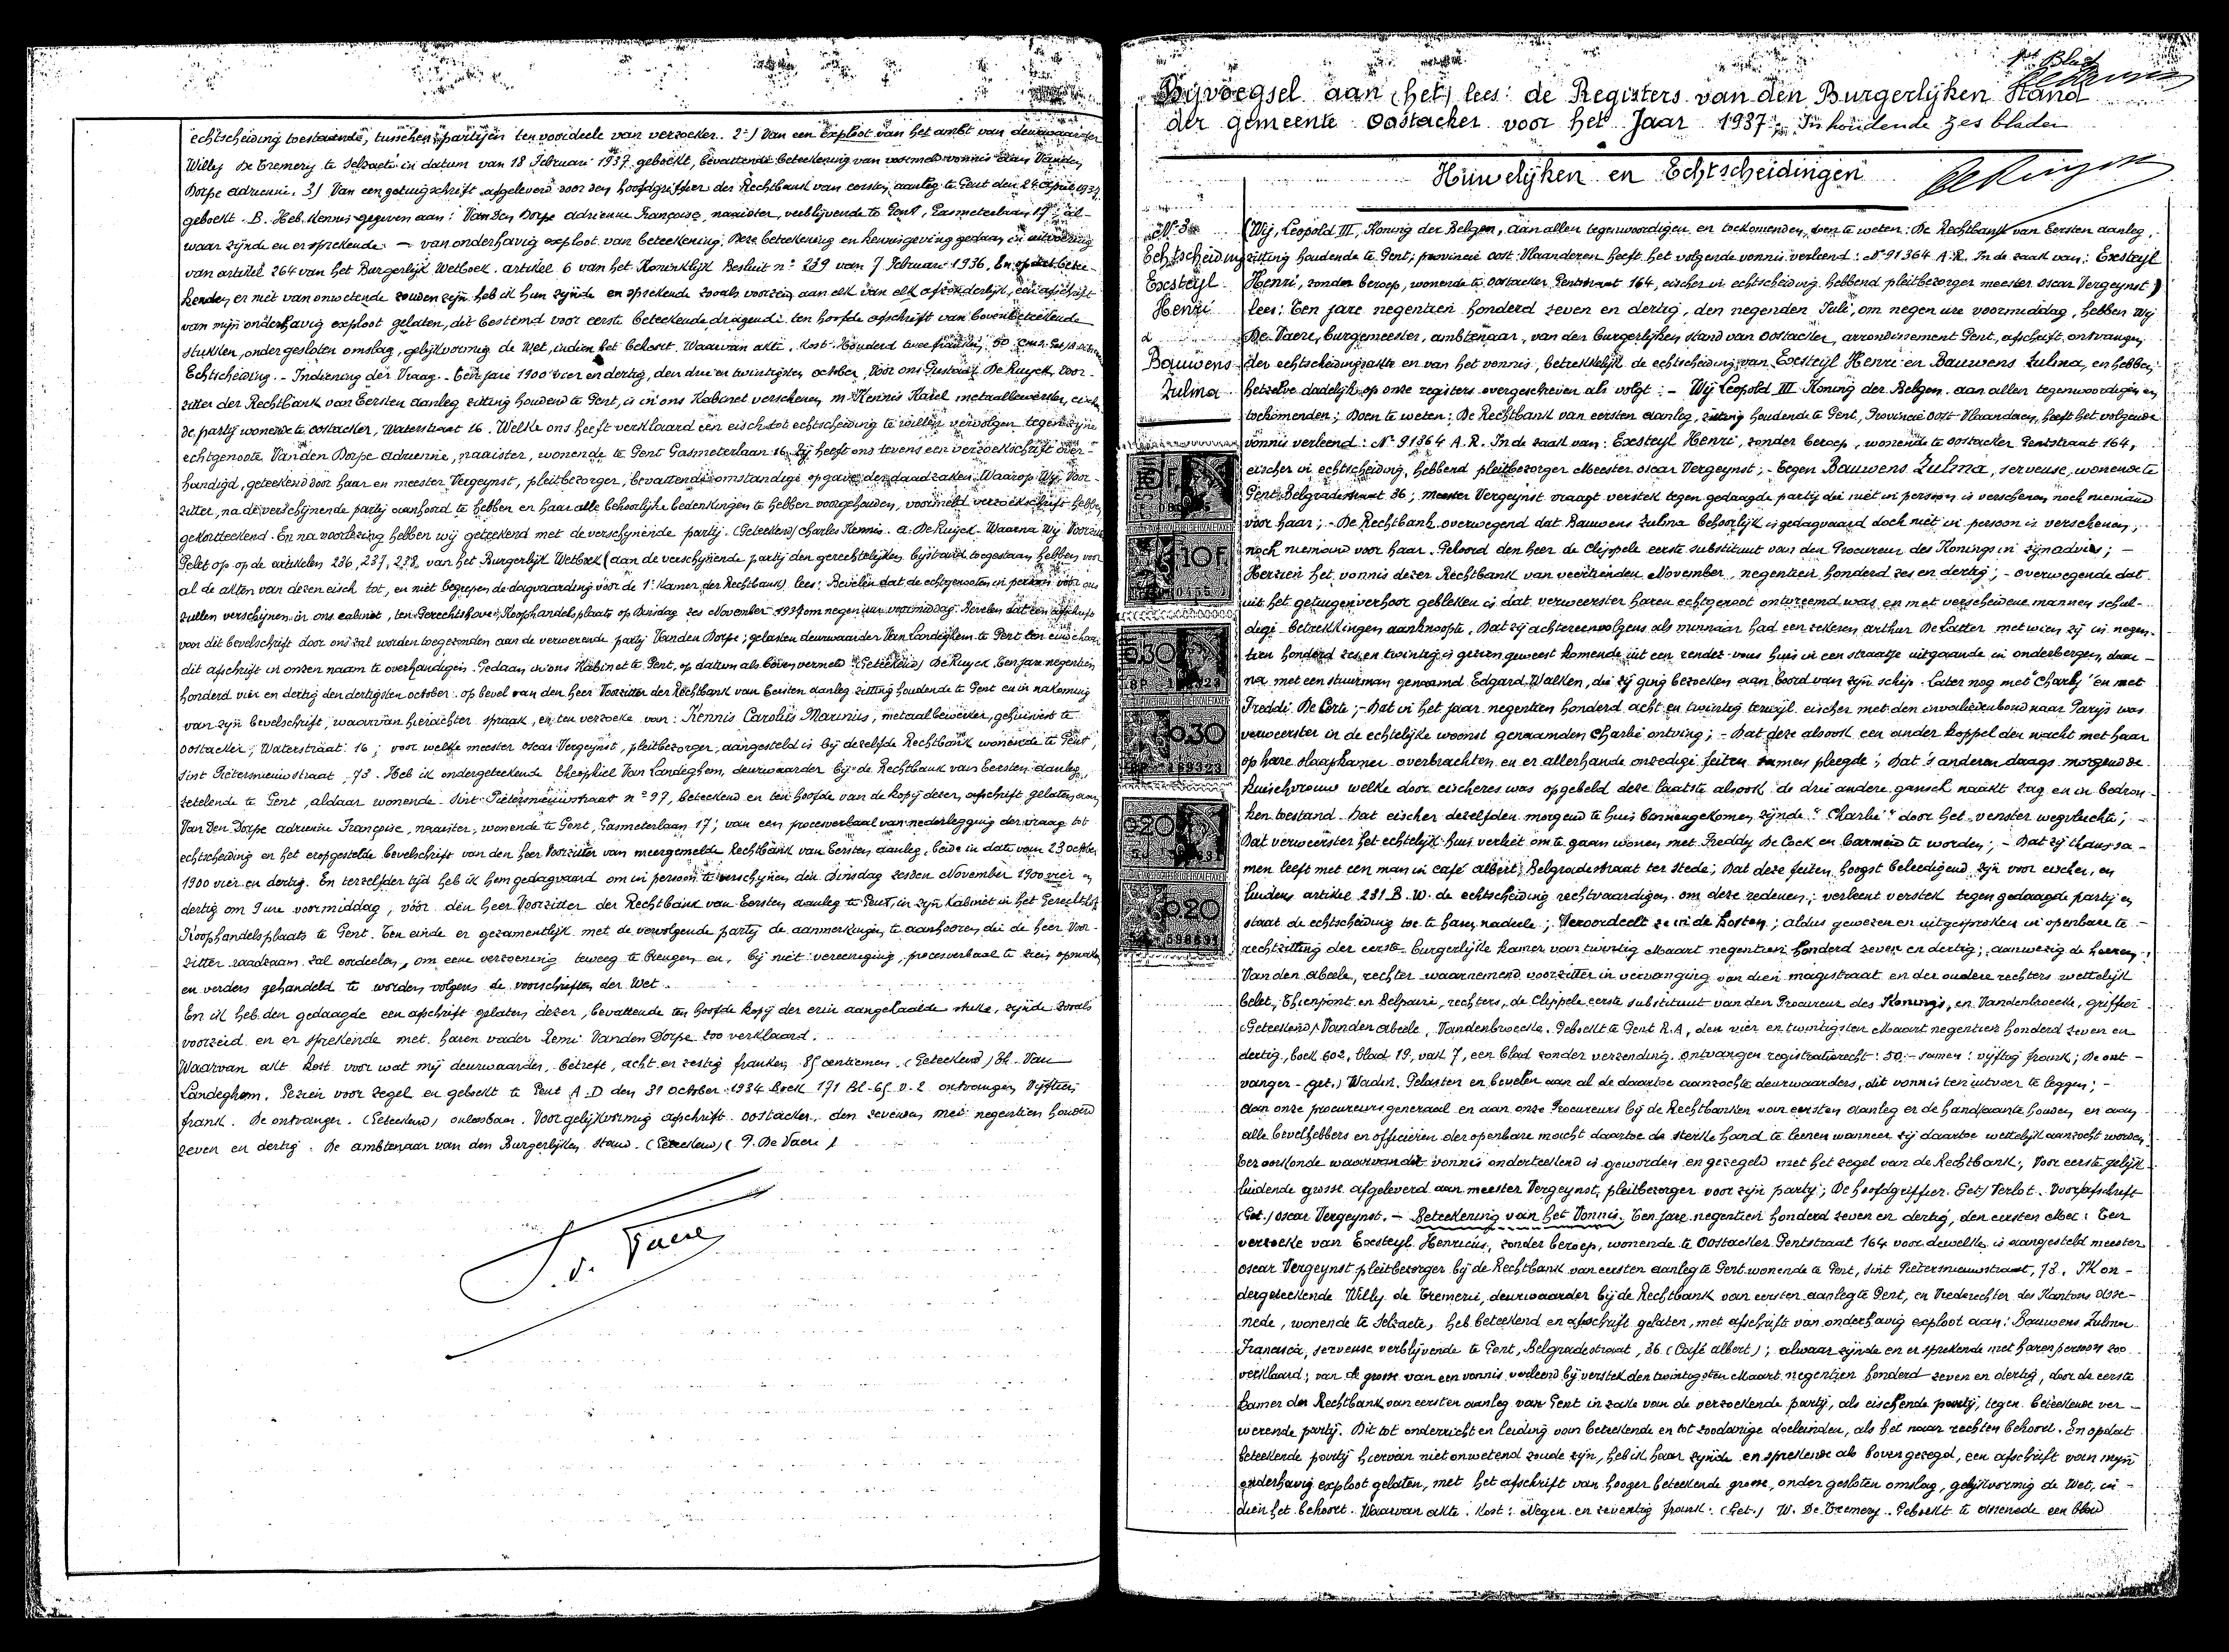 echtscheiding toestaande, tusschen partijen ten voordeele van verzoeker. 2°) Van een exploot van het ambt van deurwaarder
Willy De Tremery te Selzaete in datum van 18 Februari 1937 geboekt, bevattende beteekening van voormeld vonnis aan Vanden
Dorpe adrienne. 3) Van een getuigschrift afgeleverd door den hoofdgriffier der Rechtbank van eersten aanleg te Gent den 24 April 1937
geboekt. B. Heb kennis gegeven aan: Van Den Dorpe adrienne Françoise, naaister, verblijvende te Gent, Gasmeterlaan 17, al-
waar zijnde en er sprekende: — van onderhavig exploot van beteekening. Deze beteekening en kennisgeving gedaan in uitvoering
van artikel 264 van het Burgerlijk Wetboek. artikel 6 van het Koninklijk Besluit n° 239 van 7 Februari 1936. En opdat betee-
kenden er niet van onwetende zouden zijn heb ik hun zijnde en sprekende zooals voorzeid, aan elk van elk afzonderlijk, een afschrift
van mijn onderhavig exploot gelaten, dit bestemd voor eerste beteekende dragende ten hoofde afschrift van bovenbeteekende
stukken, onder gesloten omslag, gelijkvormig de Wet, indien het behoort. Waarvan akte. Kost: Honderd twee franken 50
Echtscheiding. - Indiening der Vraag. - Ten jare 1900 vier en dertig, den drie en twintigsten october, Vóór ons Gustaaf De Ruyck, Voor-
zitter der Rechtbank van Eersten aanleg zitting houdend te Gent, is in ons Kabinet verschenen m. Kennis Karel metaalbewerker, eischen-
de partij wonende te oostacker, Waterstraat 16. Welke ons heeft verklaard een eisch tot echtscheiding te willen vervolgen tegen zijne
echtgenoote Vanden Dorpe adrienne, naaister, wonende te Gent Gasmeterlaan 16. Hij heeft ons tevens een verzoekschrift over-
handigd, geteekend door haar en meester Vergeynst, pleitbezorger, bevattende omstandige opgave der daadzaken. Waarop Wij Voor-
zitter, na de verschijnende partij aanhoord te hebben en haar alle behoorlijke bedenkingen te hebben voorgehouden, voormeld verzoekschrift hebben
gekortteekend. En na voorlezing hebben wij geteekend met de verschijnende partij. (Geteekend) Charles Kennis. G. De Ruyck. Waarna Wij Voorzitter
Gelet op op de artikelen 236, 237, 238, van het Burgerlijk Wetboek (aan de verschijnende partij den gerechtelijken bijstand toegestaan hebben voor
al de akten van dezen eisch tot, en niet begrepen de dagvaarding voor de 1e Kamer der Rechtbank) lees: Bevelen dat de echtgenooten in persoon voor ons
zullen verschijnen in ons cabinet, ten Gerechtshove, Koophandelsplaats op Dinsdag zes November 1934 om negen uur voormiddag. Bevelen dat een afschrift
van dit bevelschrift door ons zal worden toegezonden aan de verwerende partij Vanden Dorpe; gelasten deurwaarder Van Landeghem te Gent ten einde haar
dit afschrift in onzen naam te overhandigen. Gedaan in ons Kabinet te Gent, op datum als boven vermeld (Geteekend) De Ruyck. Ten jare negentien
honderd vier en dertig den dertigsten october. op bevel van den heer Voorzitter der Rechtbank van Eersten aanleg zitting houdende te Gent en in nakoming
van zijn bevelschrift, waarvan hierachter spraak, en ten verzoeke van: Kennis Carolus Marinus, metaalbewerker, gehuisvest te
oostacker, Waterstraat 16; voor welke meester Oscar Vergeynst, pleitbezorger, aangesteld is bij dezelfde Rechtbank wonende te Gent,
Sint Pietersnieuwstraat 73. Heb ik ondergeteekende Theophiel Van Landeghem, deurwaarder bij de Rechtbank van Eersten aanleg,
zetelende te Gent, aldaar wonende Sint Pietersnieuwstraat n° 97, beteekend en ten hoofde van de kopij dezer, afschrift gelaten aan
Van Den Dorpe adrienne Françoise, naaister, wonende te Gent, Gasmeterlaan 17; van een procesverbaal van nederlegging der vraag tot
echtscheiding en het eropgestelde bevelschrift van den heer Voorzitter van meergemelde Rechtbank van Eersten aanleg, beide in date van 23 october
1900 vier en dertig. En terzelfder tijd heb ik hem gedagvaard om in persoon te verschijnen den Dinsdag zesden November 1900 vier en
dertig om 9 ure voormiddag, vóór den heer Voorzitter der Rechtbank van Eersten aanleg te Gent, in zijn Kabinet in het Gerechtshof
Koophandelsplaats te Gent. Ten einde er gezamentlijk met de vervolgende partij de aanmerkingen te aanhooren die de heer Voor-
zitter raadzaam zal oordeelen, om eene verzoening teweeg te brengen en, bij niet vereeniging, procesverbaal te zien opmaken
en verders gehandeld te worden volgens de voorschriften der Wet.
En ik heb den gedaagde een afschrift gelaten dezer, bevattende ten hoofde kopij der erin aangehaalde stuks, zijnde zooals
voorzeid en er sprekende met haren vader Remi Vanden Dorpe zoo verklaard.
Waarvan akt kost voor wat mij deurwaarder betreft, acht en zestig franken 85 centiemen. (Geteekend) Th. Van
Landeghem. Gezien voor zegel en geboekt te Gent A.D den 31 October 1934 Boek 171 Bl. 65 v. 2 ontvangen Vijftien
frank. De ontvanger. (Geteekend) onleesbaar. Voor gelijkvormig afschrift. oostacker den zevenden mei negentien honderd
zeven en dertig. De ambtenaar van den Burgerlijken stand. (Geteekend) ( P. De Vaere )
1ste Blad
Bijvoegsel aan (het) lees: de Registers van den Burgerlijken Stand
der gemeente Oostacker voor het Jaar 1937. Inhoudende zes bladen
Huwelijken en Echtscheidingen
N° 3
Echtscheiding
Exsteyl
Henri
&
Bauwens
Zulma
(Wij, Leopold III, Koning der Belgen, aan allen tegenwoordigen en toekomenden, doen te weten: De Rechtbank van Eersten aanleg,
zitting houdende te Gent; provincie oost-Vlaanderen heeft het volgende vonnis verleend: N° 91364 A.R. In de zaak van: Exsteyl
Henri, zonder beroep, wonende te oostacker Gentstraat 164, eischer in echtscheiding hebbend pleitbezorger meester Oscar Vergeynst)
lees: Ten jare negentien honderd zeven en dertig, den negenden Juli, om negen ure voormiddag, hebben Wij
De Vaere, burgemeester, ambtenaar, van den burgerlijken stand van Oostacker, arrondissement Gent, afschrift ontvangen
der echtscheidingsakte en van het vonnis, betrekkelijk de echtscheiding van Exsteyl Henri en Bauwens Zulma, en hebben
hetzelve dadelijk op onze registers overgeschreven als volgt: — Wij Leopold III Koning der Belgen. aan allen tegenwoordigen en
toekomenden; Doen te weten: De Rechtbank van eersten aanleg, zitting houdende te Gent, Provincie Oost-Vlaanderen, heeft het volgende
vonnis verleend: N° 91364 A.R. In de zaak van: Exsteyl Henri, zonder beroep, wonende te oostacker Gentstraat 164,
eischer in echtscheiding, hebbend pleitbezorger Meester Oscar Vergeynst; - Tegen Bauwens Zulma, serveuse, wonende te
Gent Belgradestraat 36; meester Vergeynst vraagt verstek tegen gedaagde partij die niet in persoon is verschenen noch niemand
voor haar; - De Rechtbank overwegend dat Bauwens Zulma behoorlijk is gedagvaard doch niet in persoon is verschenen,
noch niemand voor haar. Gehoord den heer de Clippele eerste substituut van den Procureur des Konings in zijn advies; —
Herzien het vonnis dezer Rechtbank van veertienden November negentien honderd zes en dertig; - overwegende dat
uit het getuigenverhoor gebleken is dat verweerster haren echtgenoot ontvreemd was en met verscheidene mannen schul-
dige betrekkingen aanknoopte. Dat zij achtereenvolgens als minnaar had een zekeren arthur De Latter met wien zij in negen-
tien honderd zes en twintig is gezien geweest komende uit een rendez-vous huis in een straatje uitgaande in onderbergen, daar-
na met een stuurman genaamd Edgard Walken, die zij ging bezoeken aan boord van zijn schip. Later nog met "Charly" en met
Freddi De Corte; - Dat in het jaar negentien honderd acht en twintig terwijl eischer met den invaliedenbond naar Parijs was
verweerster in de echtelijke woonst genaamden Charlie ontving; - Dat deze alsook een ander koppel den nacht met haar
op hare slaapkamer overbrachten en er allerhande onzedige feiten samen pleegde; Dat 's anderendaags morgend de
kuischvrouw welke door eischeres was opgebeld deze laatste alsook de drie andere gansch naakt zag en in bedron-
ken toestand. Dat eischer dezelfden morgend te huis binnengekomen zijnde "Charlie" door het venster wegvluchte; —
Dat verweerster het echtelijk huis verliet om te gaan wonen met Freddy De Cock en barmeid te worden; - Dat zij thans sa-
men leeft met een man in café Albert, Belgradestraat ter stede; Dat deze feiten hoogst beleedigend zijn voor eischer, en
luidens artikel 231. B.W. de echtscheiding rechtvaardigen. om deze redenen; verleent verstek tegen gedaagde partij en
staat de echtscheiding toe te haren nadeele; Veroordeelt ze in de kosten; aldus gewezen en uitgesproken in openbare te-
rechtzitting der eerste burgerlijke kamer van twintig Maart negentien honderd zeven en dertig; aanwezig de heeren:
Van den abeele, rechter waarnemend voorzitter in vervanging van dien magistraat en der oudere rechters wettelijk
belet, Thienpont en Delpaire, rechters, de Clippele eerste substituut van den Procureur des Konings, en Vandenbroecke, griffier
(Geteekend) Vanden abeele, Vandenbroecke. Geboekt te Gent R.A, den vier en twintigsten Maart negentien honderd zeven en
dertig, boek 602, blad 19, vak 7, een blad zonder verzending. ontvangen registratierecht: 50.- samen: vijftig frank; De ont-
vanger - (get.) Wadin. Gelasten en bevelen aan al de daartoe aanzochte deurwaarders, dit vonnis ten uitvoer te leggen; -
aan onze procureurs generaal en aan onze Procureurs bij de Rechtbanken van eersten aanleg er de hand aan te houden, en aan
alle bevelhebbers en officieren der openbare macht daartoe de sterke hand te leenen wanneer zij daartoe wettelijk aanzocht worden.
Ter oorkonde waarvan dit vonnis onderteekend is geworden en gezegeld met het zegel van de Rechtbank; Voor eerste gelijk-
luidende grosse afgeleverd aan meester Vergeynst, pleitbezorger voor zijn partij; De hoofdgriffier. (Get) Verlot. Voor afschrift
(Get.) Oscar Vergeynst. — Beteekening van het Vonnis. Ten jare negentien honderd zeven en dertig, den eersten Mei: Ten
verzoeke van Exsteyl Henricus, zonder beroep, wonende te Oostacker Gentstraat 164 voor dewelke is aangesteld meester
Oscar Vergeynst pleitbezorger bij de Rechtbank van eersten aanleg te Gent wonende te Gent, Sint Pietersnieuwstraat, 73. Ik on-
dergeteekende Willy de Tremerie, deurwaarder bij de Rechtbank van eersten aanleg te Gent, en Vrederechter des Kantons Asse-
nede, wonende te Selzaete, heb beteekend en afschrift gelaten, met afschrift van onderhavig exploot aan: Bauwens Zulma
Francisca, serveuse verblijvende te Gent, Belgradestraat, 36 (Café Albert); alwaar zijnde en er sprekende met haren persoon zoo
verklaard; van de grosse van een vonnis verleend bij verstek den twintigsten Maart negentien honderd zeven en dertig, door de eerste
kamer der Rechtbank van eersten aanleg van Gent in zake van de verzoekende partij, als eischende partij, tegen beteekende ver-
werende partij. Dit tot onderricht en leiding van beteekende en tot zoodanige doeleinden, als het naar rechten behoort. En opdat
beteekende partij hiervan niet onwetend zoude zijn, heb ik haar zijnde en sprekende als boven gezegd, een afschrift van mijn
onderhavig exploot gelaten, met het afschrift van hooger beteekende grosse, onder gesloten omslag, gelijkvormig de Wet, in-
dien het behoort. Waarvan akte. Kost: Negen en zeventig frank. (Get.) W. De Tremery. Geboekt te Assenede een blad